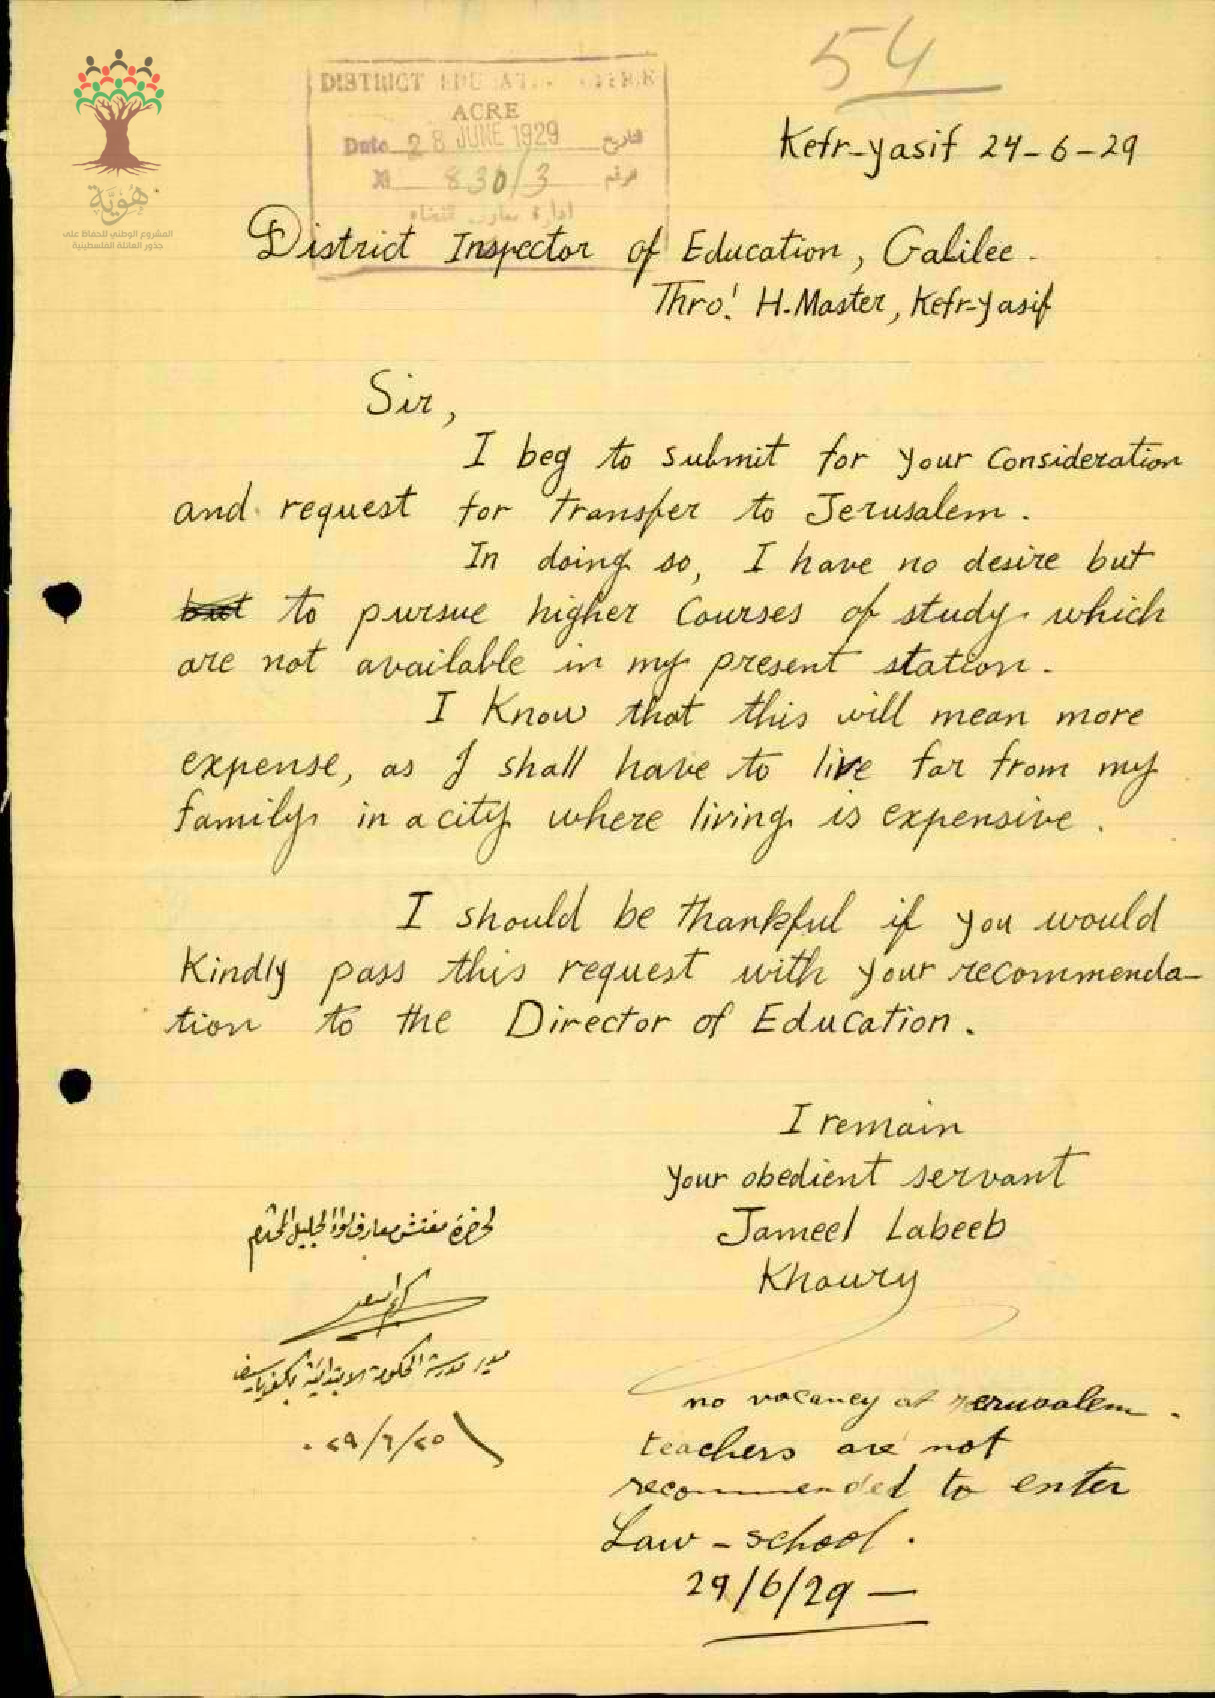 54
هوية
المشروع الوطني للحفاظ على
جذور العائلة الفلسطينية
DISTRICT EDUCATION OFFICE
ACRE
Date 28 JUNE 1929 تاريخ
No 830/3 نمرة
ادارة معارف القضاء
Kefr-yasif 24-6-29
District Inspector of Education, Galilee.
Thro! H.Master, Kefr-yasif
Sir,
I beg to submit for your Consideration
and request for transfer to Jerusalem.
In doing so, I have no desire but
but to pursue higher Courses of study which
are not available in my present station.
I Know that this will mean more
expense, as I shall have to live far from my
family in a city where living is expensive.
I should be thankful if you would
Kindly pass this request with your recommenda-
tion to the Director of Education.
I remain
your obedient servant
Jameel Labeeb
Khoury
لحضرة مفتش معارف لواء الجليل المحترم
مدير مدرسة الحكومة الابتدائية بكفرياسيف
٢٩/٦/٢٥
no vacancy at Jerusalem.
teachers are not
recommended to enter
Law-school.
29/6/29-